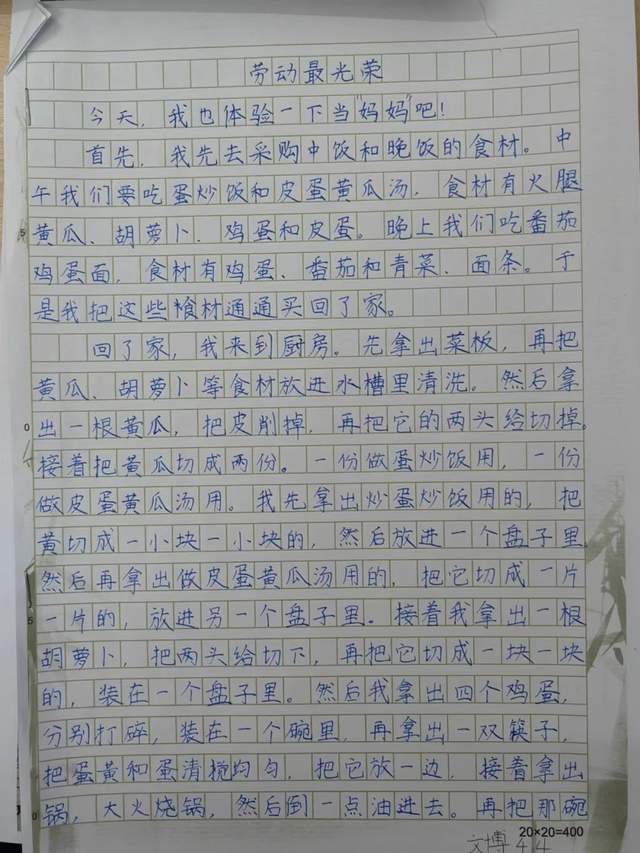 劳动最光荣
今天，我也体验一下当"妈妈"吧！
首先，我先去采购中饭和晚饭的食材。中
午我们要吃蛋炒饭和皮蛋黄瓜汤，食材有火腿
黄瓜、胡萝卜、鸡蛋和皮蛋。晚上我们吃番茄
鸡蛋面，食材有鸡蛋、番茄和青菜、面条。于
是我把这些食材通通买回了家。
回了家，我来到厨房。先拿出菜板，再把
黄瓜、胡萝卜等食材放进水槽里清洗。然后拿
出一根黄瓜，把皮削掉，再把它的两头给切掉。
接着把黄瓜切成两份。一份做蛋炒饭用，一份
做皮蛋黄瓜汤用。我先拿出炒蛋炒饭用的，把
黄切成一小块一小块的，然后放进一个盘子里
然后再拿出做皮蛋黄瓜汤用的，把它切成一片
一片的，放进另一个盘子里。接着我拿出一根
胡萝卜，把两头给切下，再把它切成一块一块
的，装在一个盘子里。然后我拿出四个鸡蛋，
分别打碎，装在一个碗里，再拿出一双筷子，
把蛋黄和蛋清搅均匀，把它放一边，接着拿出
锅，大火烧锅，然后倒一点油进去。再把那碗
20×20=400
文博44